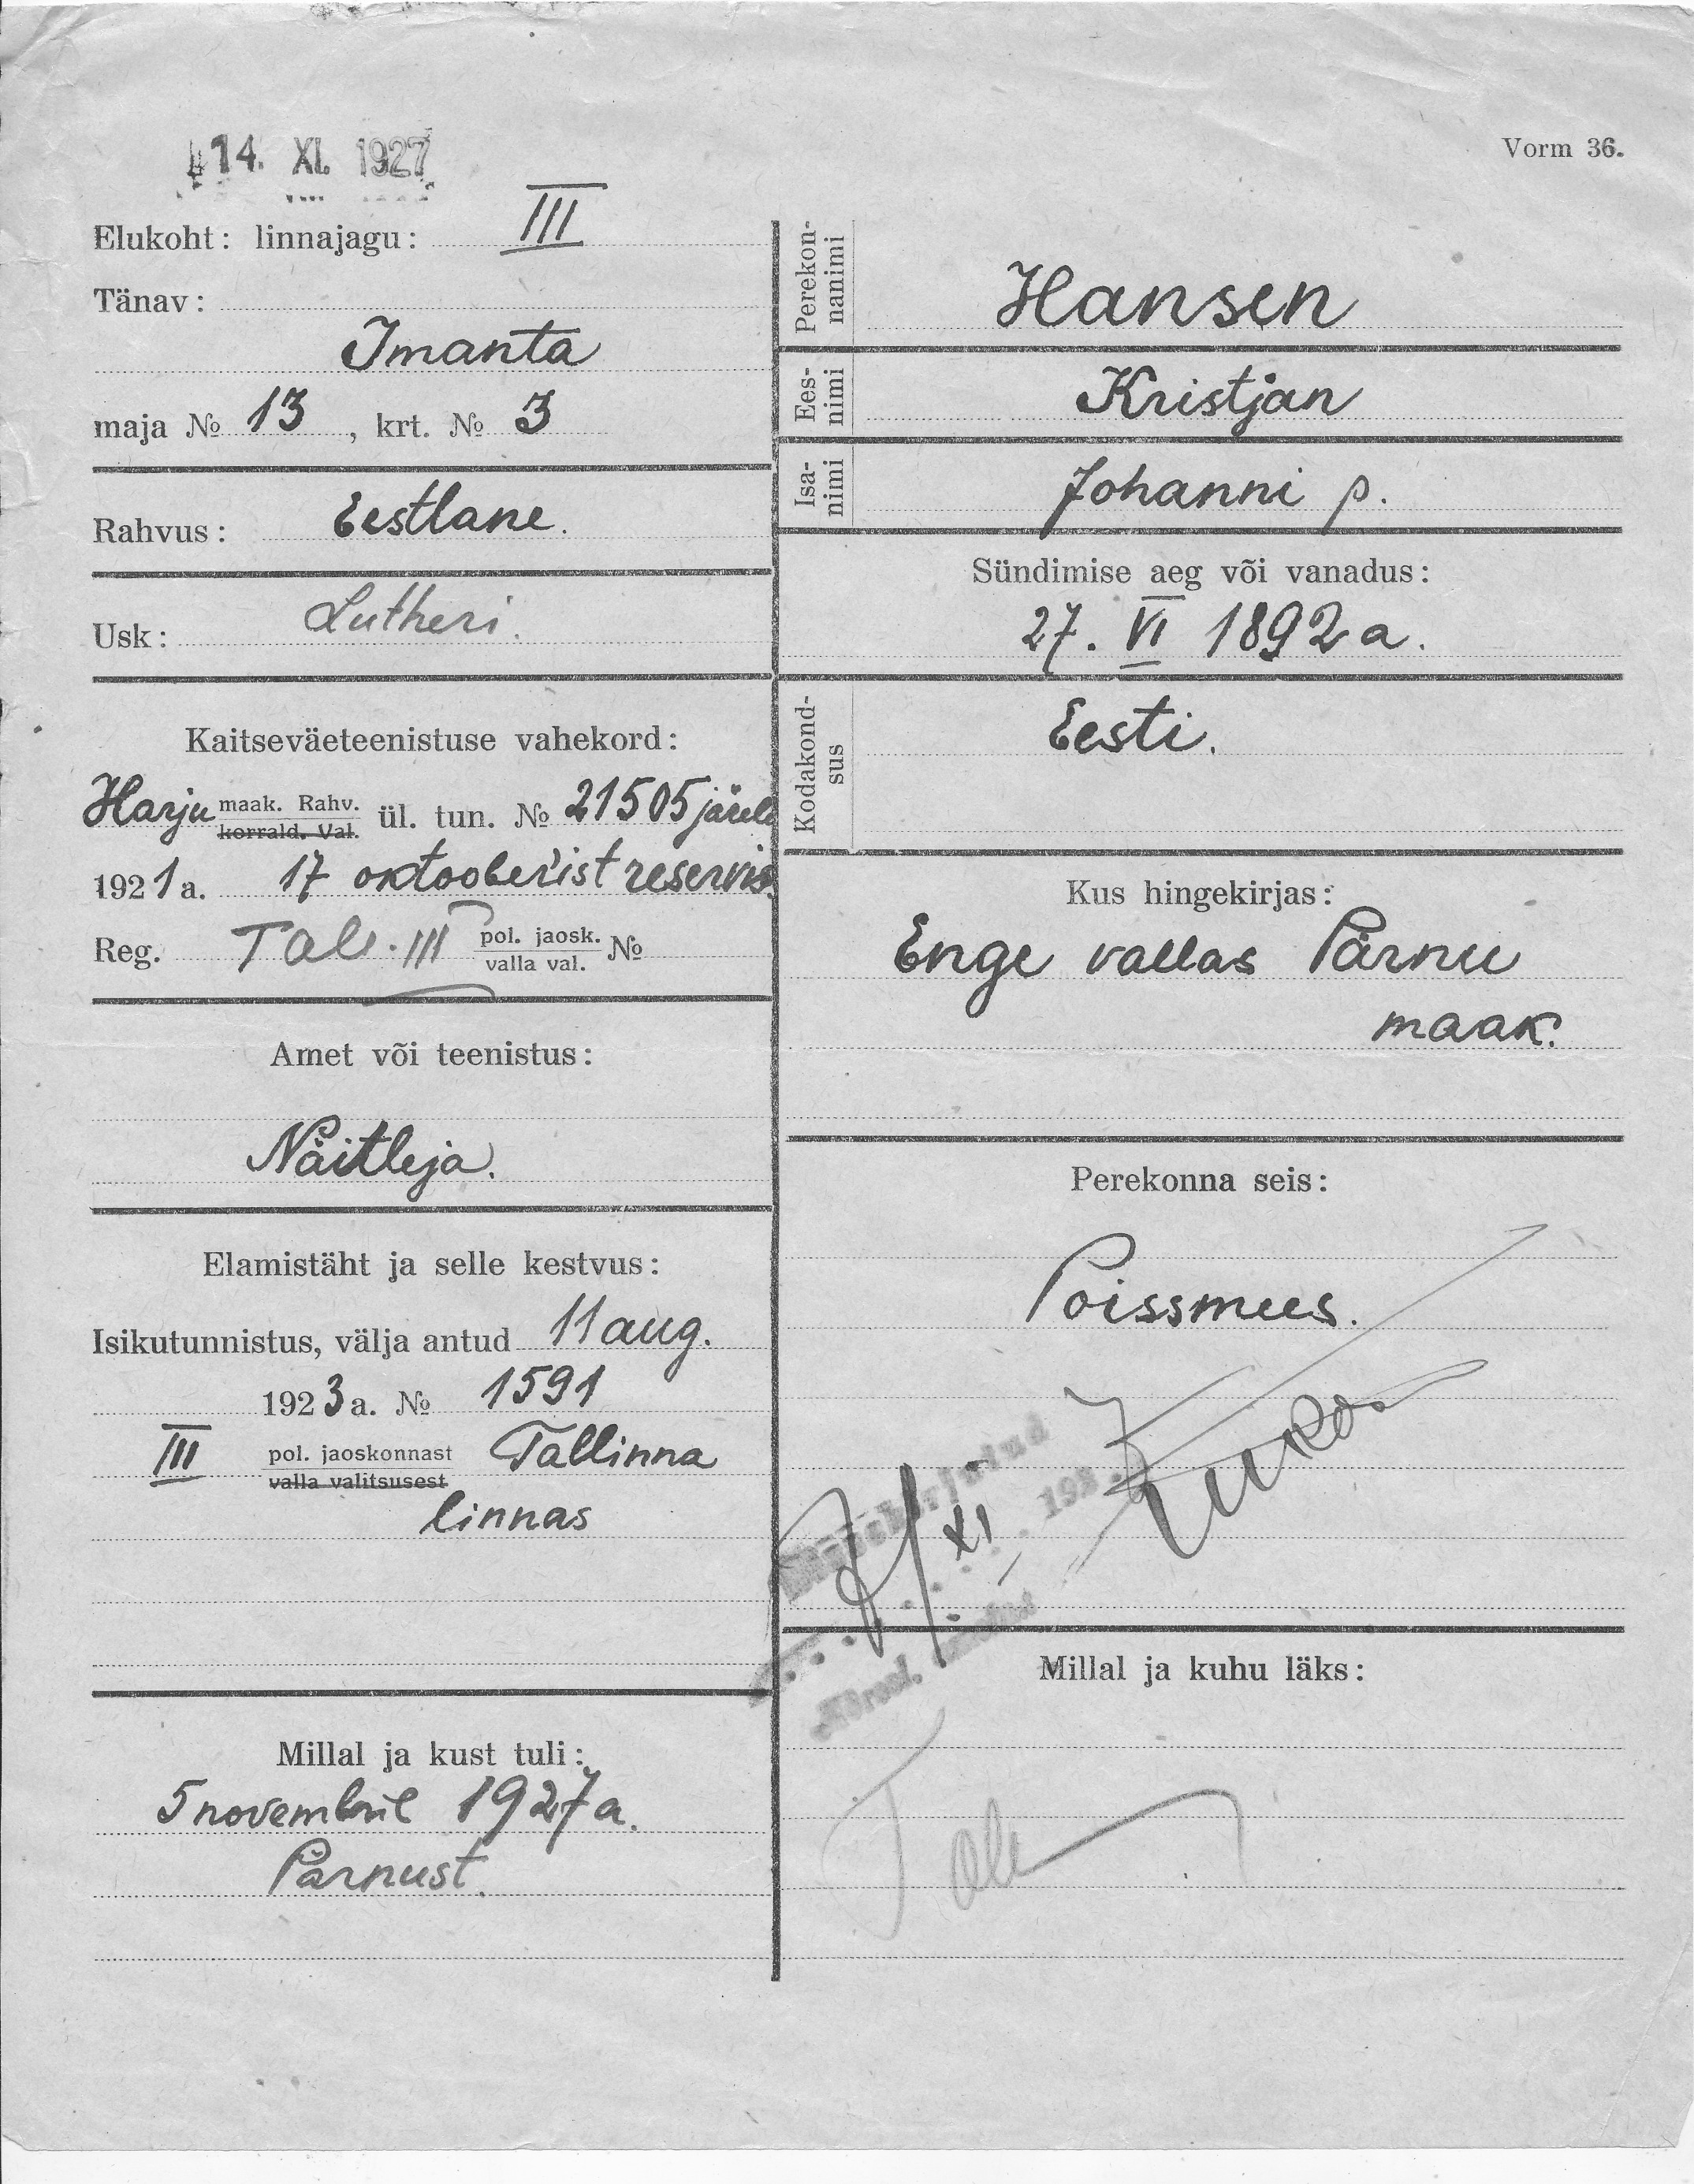 14. XI. 1927
Vorm 36.
Elukoht: linnajagu: III
Tänav:
Imanta
maja № 13, krt. № 3
Rahvus: Eestlane.
Usk: Lutheri.
Kaitseväeteenistuse vahekord:
Harju maak. Rahv. korrald. Val. ül. tun. № 21505 järele
1921 a. 17 oktooberist reservis.
Reg. Tall. III pol. jaosk. valla val. №
Amet või teenistus:
Näitleja.
Elamistäht ja selle kestvus:
Isikutunnistus, välja antud 11 aug.
1923 a. № 1591
III pol. jaoskonnast valla valitsusest Tallinna
linnas
Millal ja kust tuli:
5 novembril 1927 a.
Pärnust.
Perekonnanimi
Hansen
Eesnimi
Kristjan
Isanimi
Johanni p.
Sündimise aeg või vanadus:
27. VI 1892 a.
Kodakondsus
Eesti.
Kus hingekirjas:
Enge vallas Pärnu
maak.
Perekonna seis:
Poissmees.
XI
Millal ja kuhu läks: